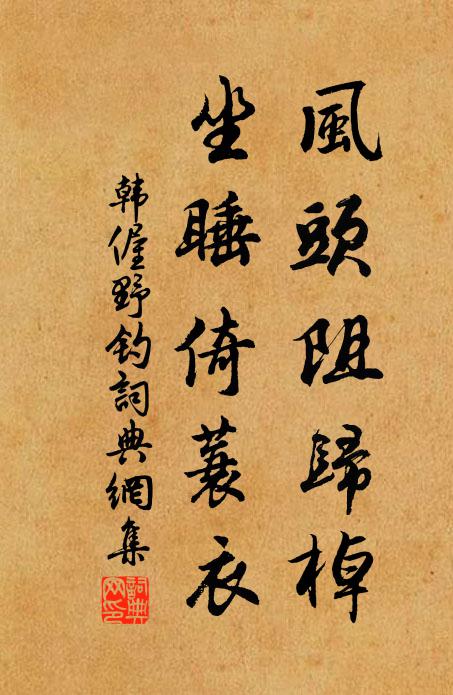 風頭阻歸棹
坐睡倚蓑衣
韩偓野釣詞典網集
詞典網印